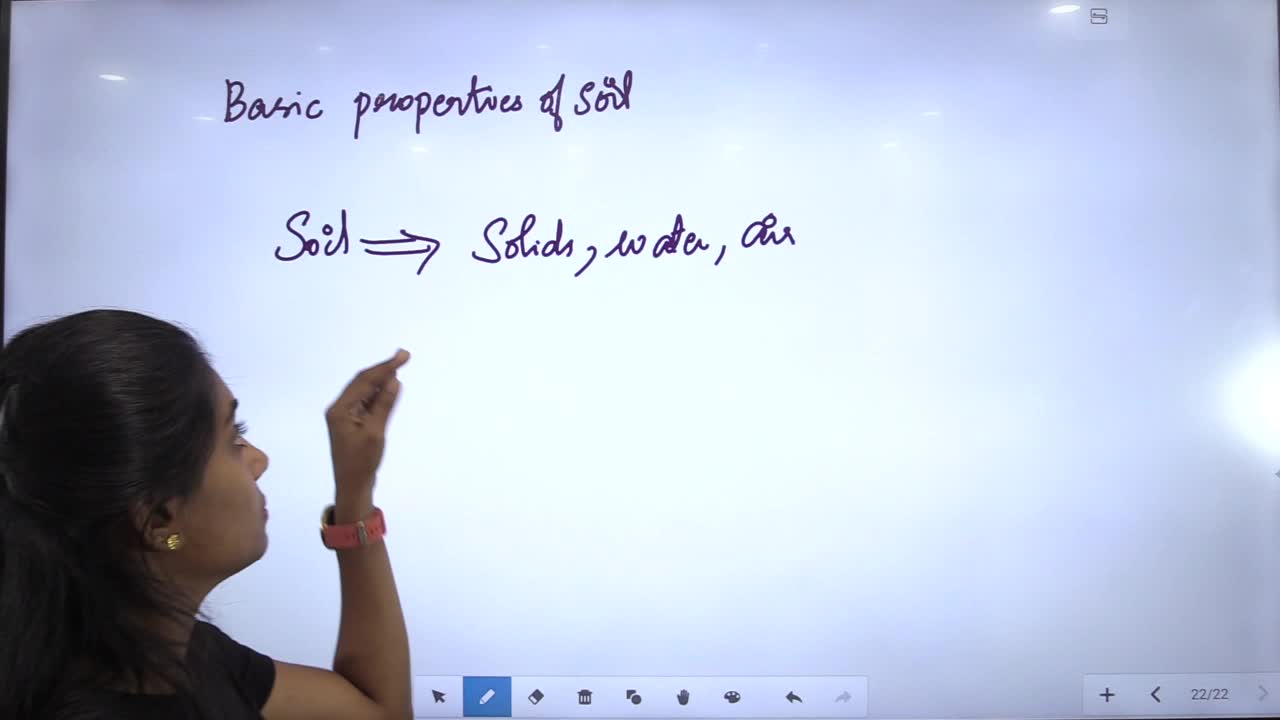 Basic properties of soil
Soil ⇒ Solids, water, air
22/22